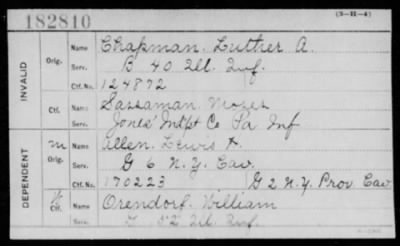 182810
(3-H-4)
INVALID
Orig.
Name Chapman, Luther A.
Serv. B 40 Ill. Inf.
Ctf. No. 124872
Ctf.
Name Sassaman, Moses
Serv. Jones' Indpt Co Pa Inf
DEPENDENT
m
Orig.
Name Allen, Lewis
Serv. G 6 N.Y. Cav.
Ctf. No. 170223 G 2 N.Y. Prov Cav
Ctf.
Name Orendorf, William
Serv. 52 Ill. Inf.